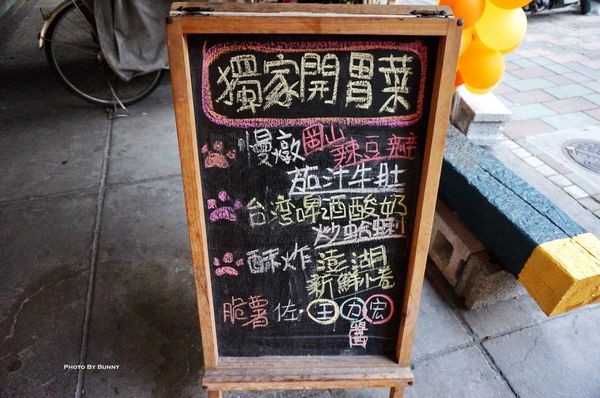 獨家開胃菜
慢燉岡山辣豆瓣
茄汁牛肚
台湾啤酒酸奶
炒蛤蜊
酥炸澎湖
新鮮小卷
脆薯佐王力宏
醬
PHOTO BY BUNNY